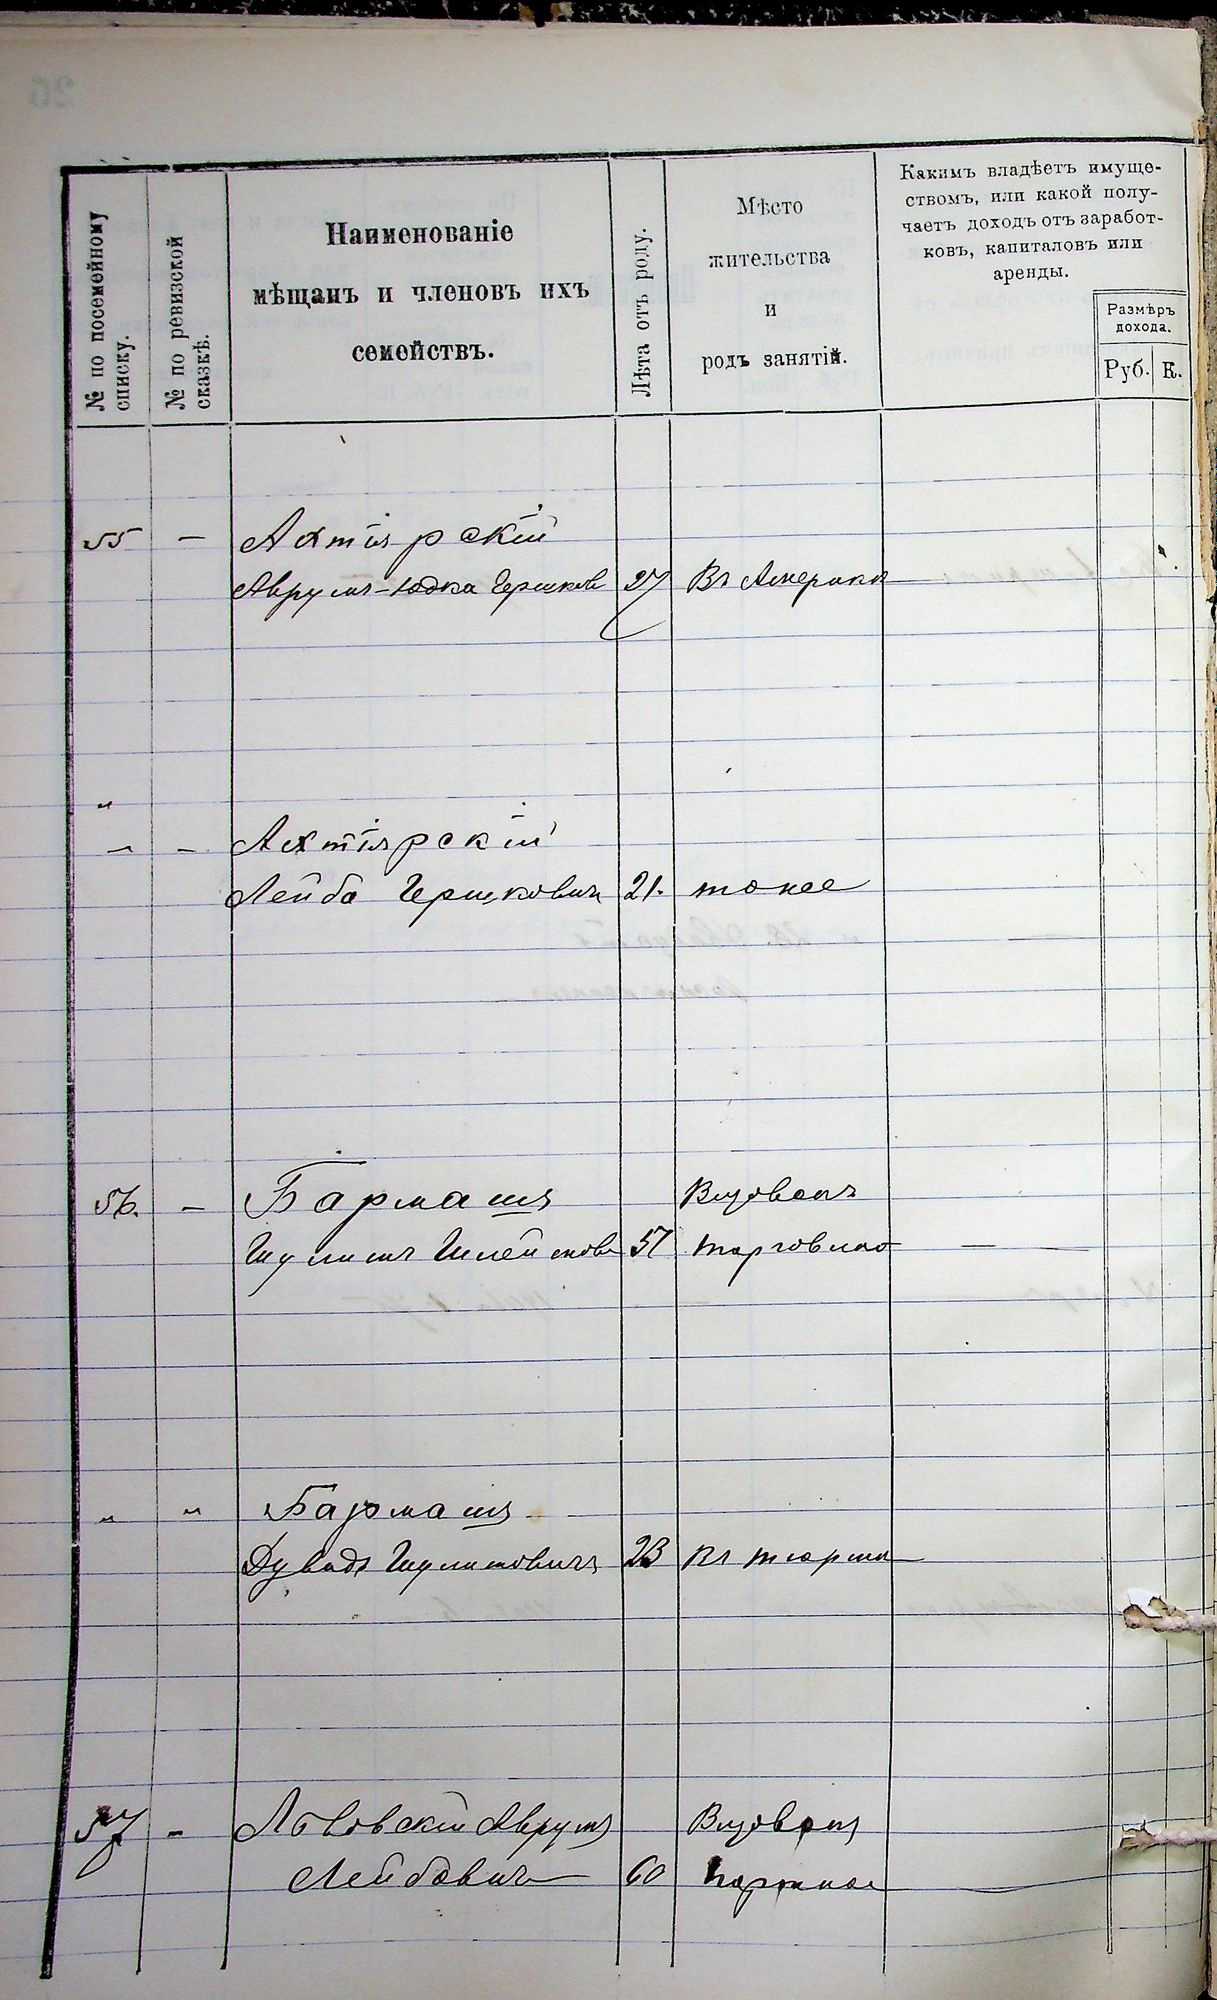 № по посемейному
списку.
№ по ревизской
сказкѣ.
Наименованіе
мѣщанъ и членовъ ихъ
семействъ.
Лѣта отъ роду.
Мѣсто
жительства
и
родъ занятій.
Какимъ владѣетъ имуще-
ствомъ, или какой полу-
чаетъ доходъ отъ заработ-
ковъ, капиталовъ или
аренды.
Размѣръ
дохода.
Руб. К.
55 — Ахтірскій
Аврумъ-Юдка Гершков 27 Въ Америки
"
" — Ахтірскій
Лейба Гершковичъ 21. тоже
56. — Бармашъ
57 торговлю
" " Бармашъ
Дувидъ 23 Въ тюрми
57 — Львовскій Аврумъ
Лейбовичъ 60